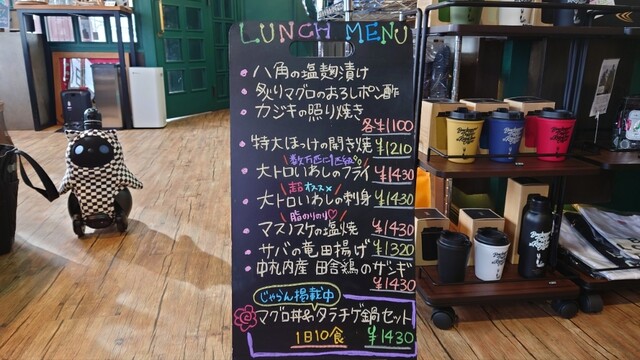 LUNCH MENU
八角の塩麹漬け
炙りマグロのおろしポン酢
カジキの照り焼き
各¥1100
特大ほっけの開き焼き ¥1210
数万匹に1匹級%
大トロいわしのフライ ¥1430
超オススメ
大トロいわしの刺身 ¥1430
脂のりのり♡
マスノスケの塩焼 ¥1430
サバの竜田揚げ ¥1320
中札内産 田舎鶏のザンギ
¥1430
じゃらん掲載中
マグロ丼&タラチゲ鍋セット
1日10食 ¥1430